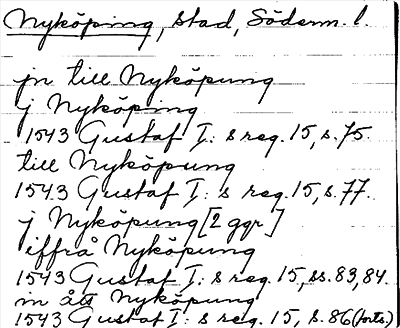 Nyköping, stad, Söderm. l.
jn till Nyköpung
j Nyköping
1543 Gustaf I: s reg. 15, s. 75.
till Nyköpung
1543 Gustaf I: s reg. 15, s. 77.
j Nyköpung [2 ggr]
iffrå Nyköpung
1543 Gustaf I: s reg. 15, ss. 83, 84.
in ått Nyköpung
1543 Gustaf I: s reg. 15, s. 86 (forts.)